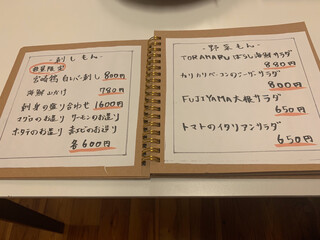 - 刺しもん -
数量限定
宮崎鶏 白レバ刺し 800円
海鮮ユッケ 780円
刺身の盛り合わせ 1600円
マグロのお造り サーモンのお造り
ホタテのお造り 赤エビのお造り
各600円
- 野菜もん -
TORAMARU ばらし海鮮サラダ
880円
カリカリベーコンのシーザーサラダ
800円
FUJIYAMA大根サラダ
650円
トマトのイタリアンサラダ
650円